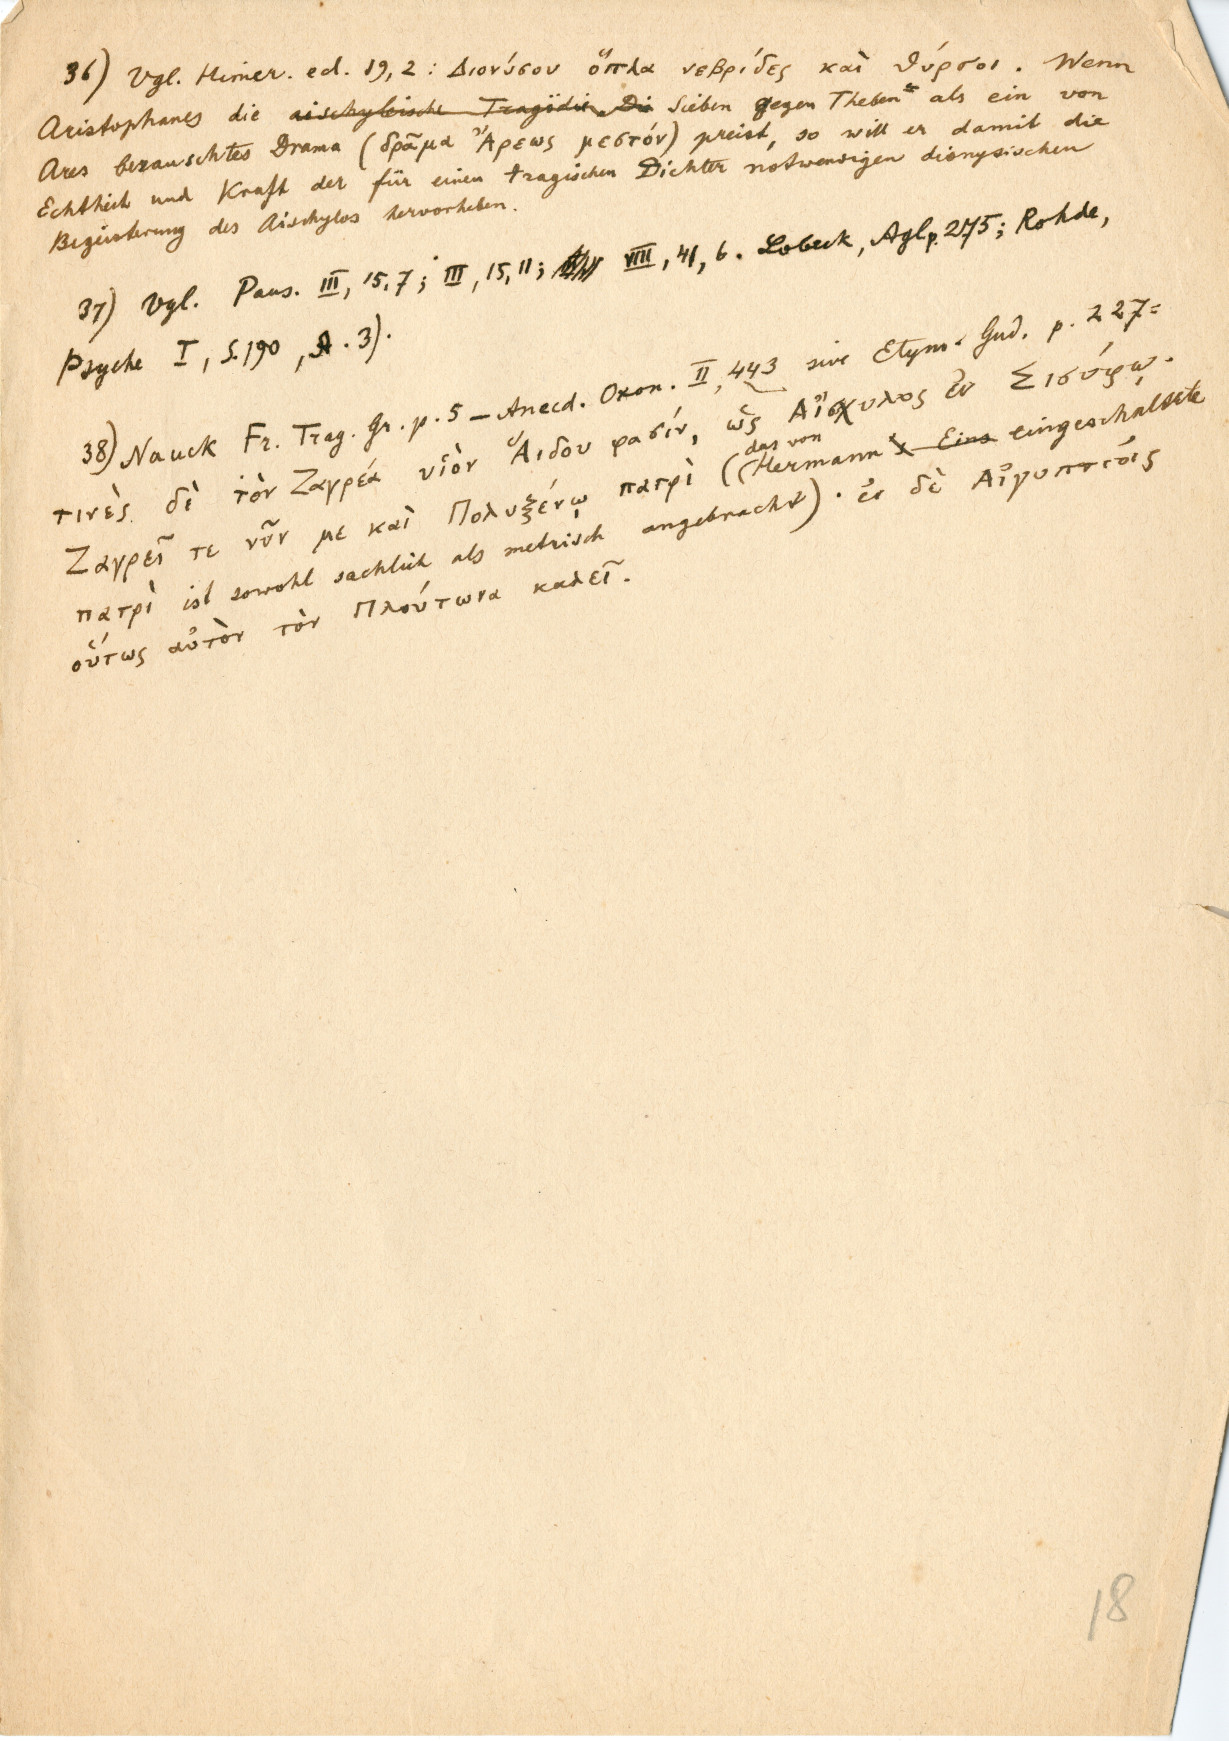 36) Vgl. Himer. ecl. 19, 2 : Διονύσου ὅπλα νεβρίδες καὶ θύρσοι. Wenn
Aristophanes die aischyleische Tragödie Di Sieben gegen Theben" als ein von
Ares berauschtes Drama (δρᾶμα Ἄρεως μεστόν) preist, so will er damit die
Echtheit und Kraft der für einen tragischen Dichter notwendigen dionysischen
Begeisterung des Aischylos hervorheben.
37) Vgl. Paus. III, 15, 7; III, 15, 11; VIII, 41, 6. Lobeck, Agl. p. 275; Rohde,
Psyche I, S. 190, A. 3).
38) Nauck Fr. Trag. Gr. p. 5 – Anecd. Oxon. II, 443 sive Etym. Gud. p. 227 =
τινὲς δὲ τὸν Ζαγρέα υἱὸν Ἅιδου φασίν, ὡς Αἰσχυλος ἐν Σισύφῳ.
Ζαγρεῖ τε νῦν με καὶ Πολυξένῳ πατρὶ ((das von Hermann Eins eingeschaltete
πατρὶ ist sowohl sachlich als metrisch angebracht). ἐν δὲ Αἰγυπτίοις
οὕτως αὐτὸν τὸν Πλούτωνα καλεῖ.
18